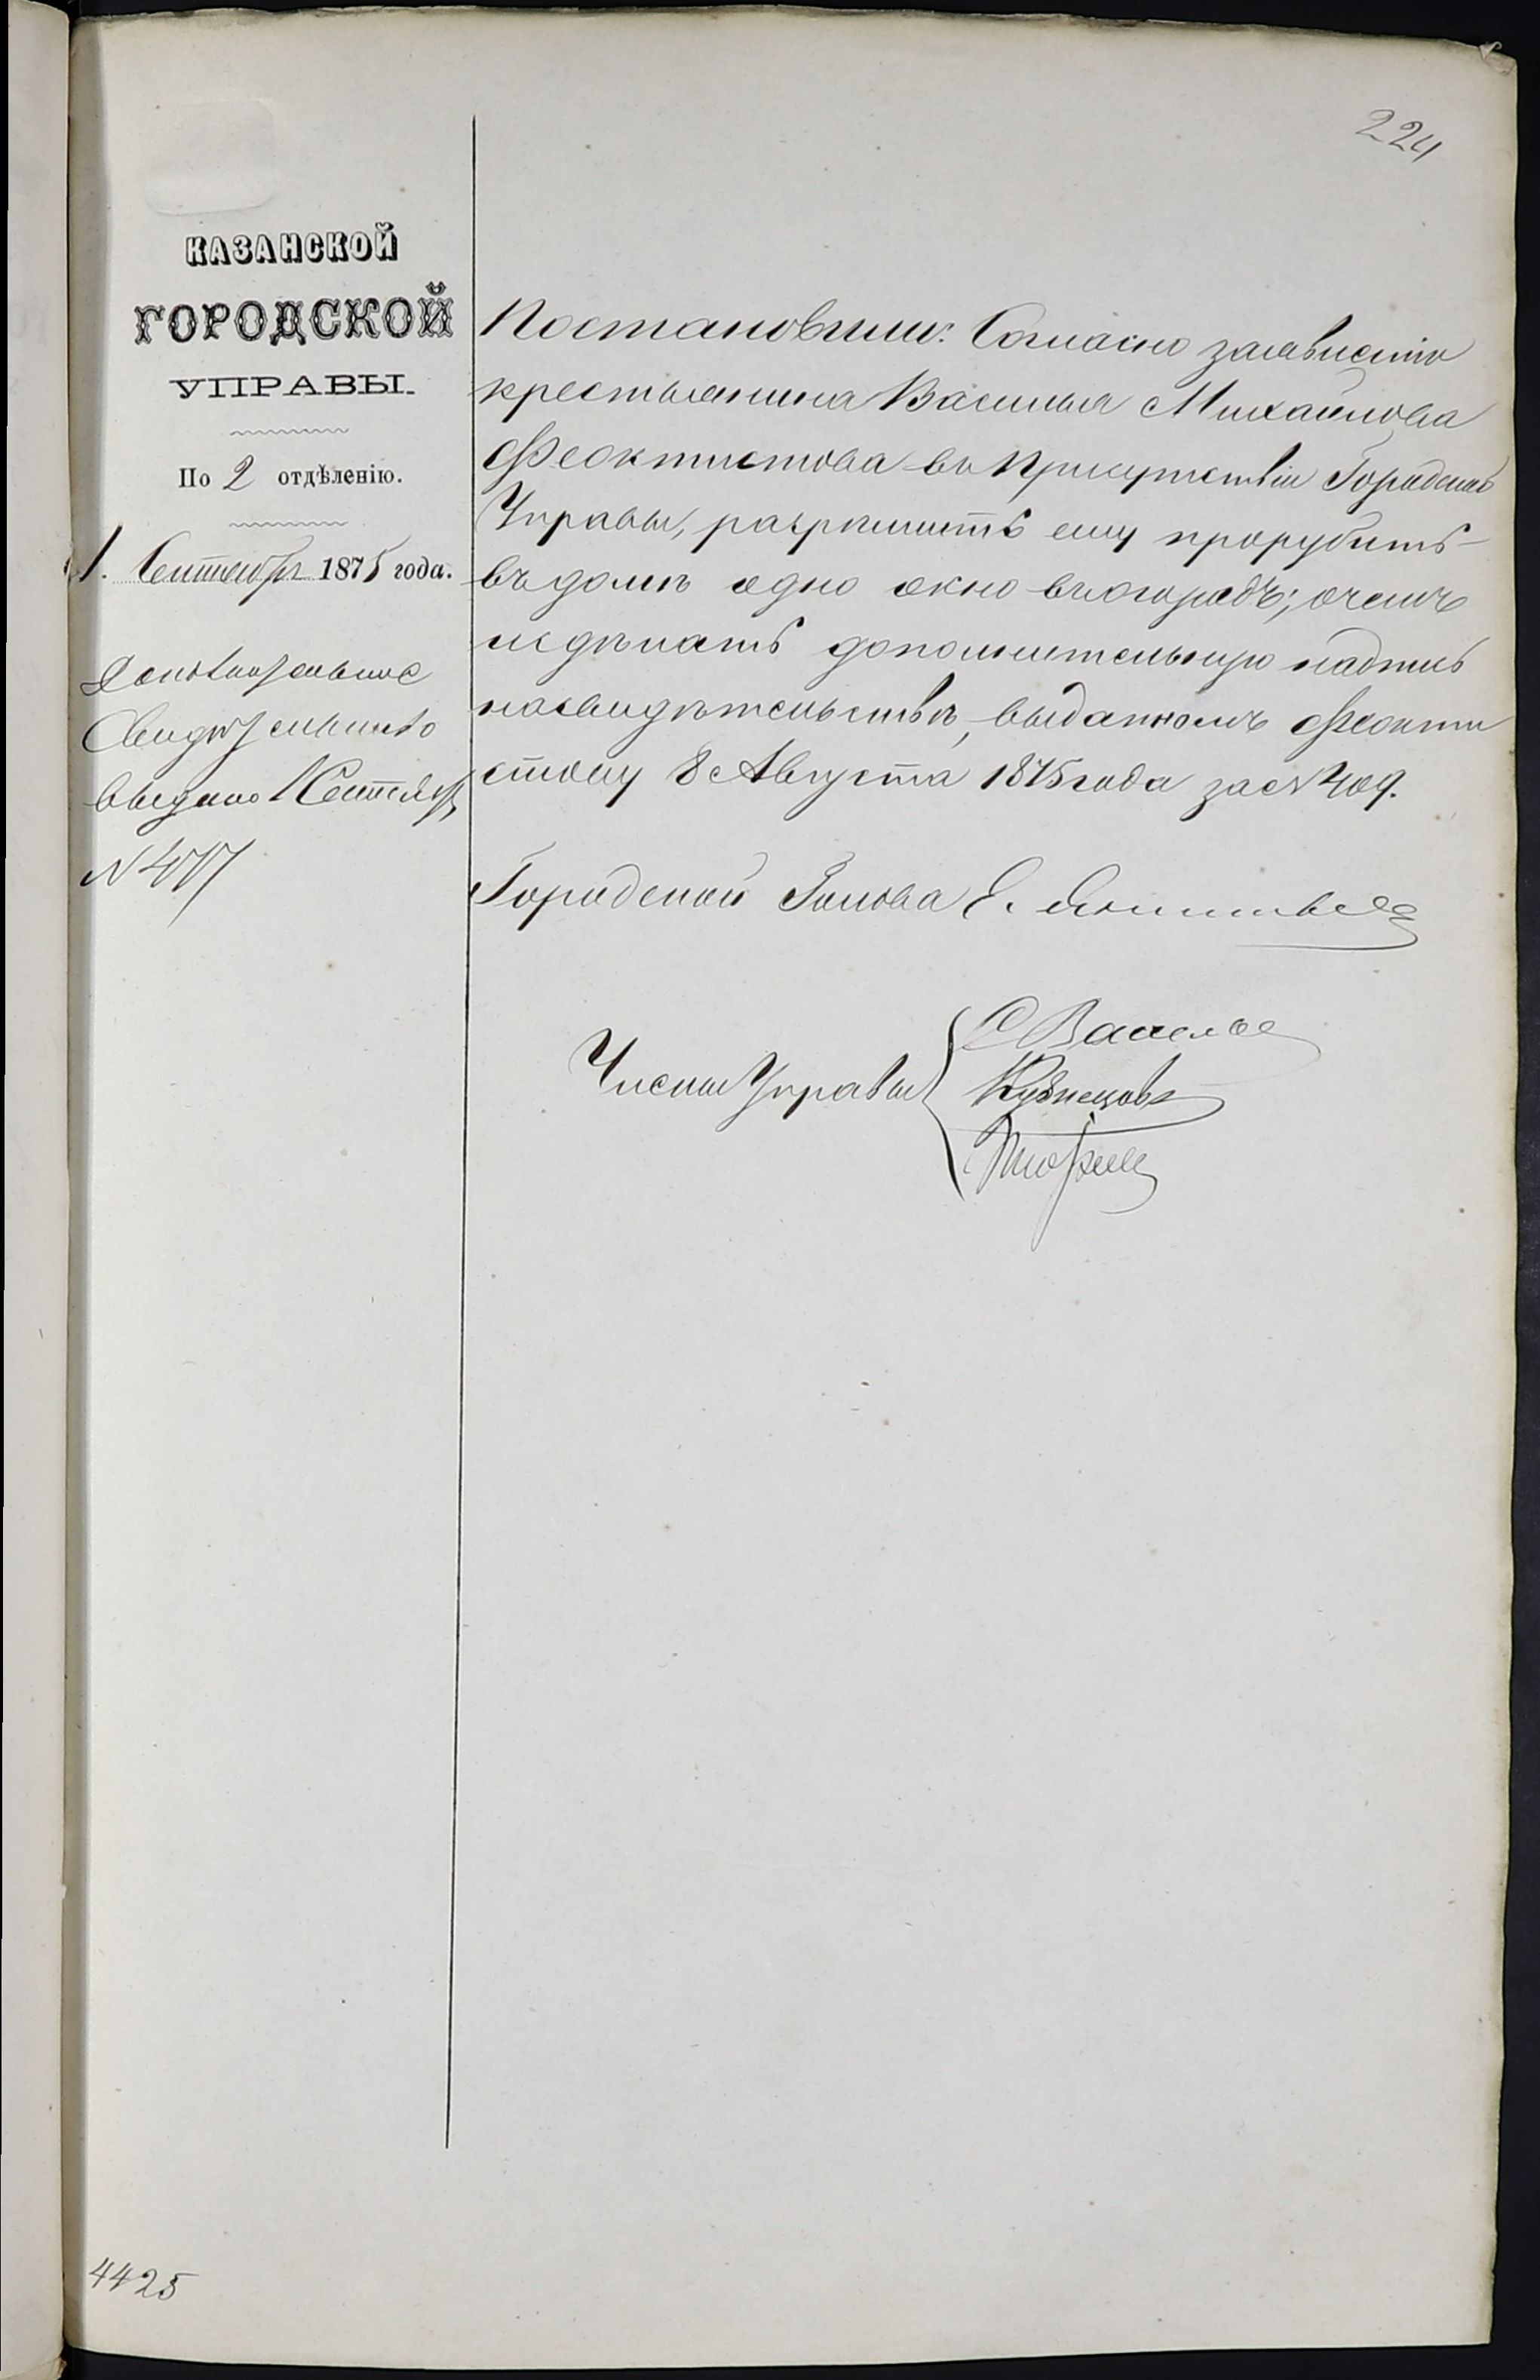 224
КАЗАНСКОЙ
ГОРОДСКОЙ
УПРАВЫ.
По 2 отдѣленію.
1. Сентября 1875 года.
Дополнительное
Свидѣтельство
выдано 1 Сентября
N
Постановили: Согласно заявленію
крестьянина Василья Михайлова
Феоктистова въ Присутствіи Городской
Управы, разрѣшить ему прорубить
въ домѣ одно окно въ огородъ; о чемъ
сдѣлать дополнительную надпись
на свидѣтельствѣ, выданномъ Феокти
стову 8 Августа 1875 года за N 409.
Городской Голова Е.
Члены Управы
С
Кузнецовъ
4425